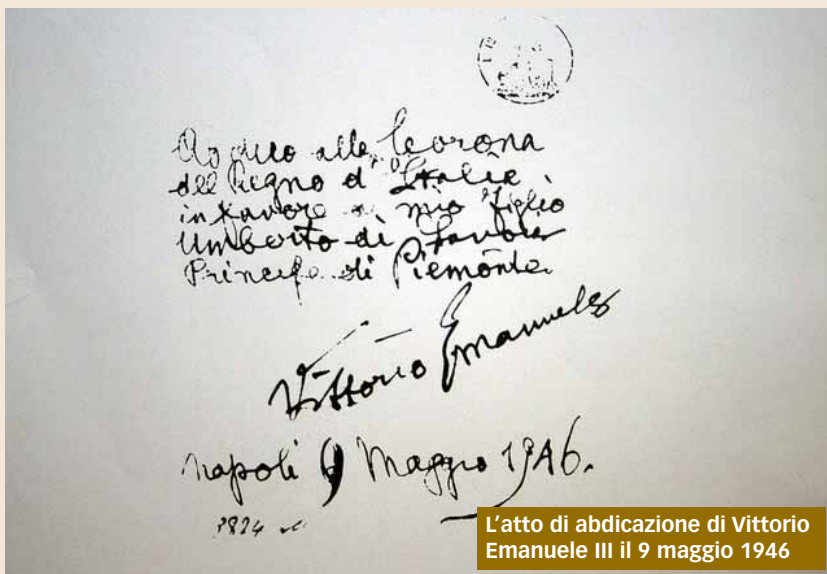 alla Corona
del Regno d'Italia
in favore di mio Figlio
Umberto di Savoia
Principe di Piemonte
Vittorio Emanuele
Napoli 9 Maggio 1946.
L'atto di abdicazione di Vittorio
Emanuele III il 9 maggio 1946